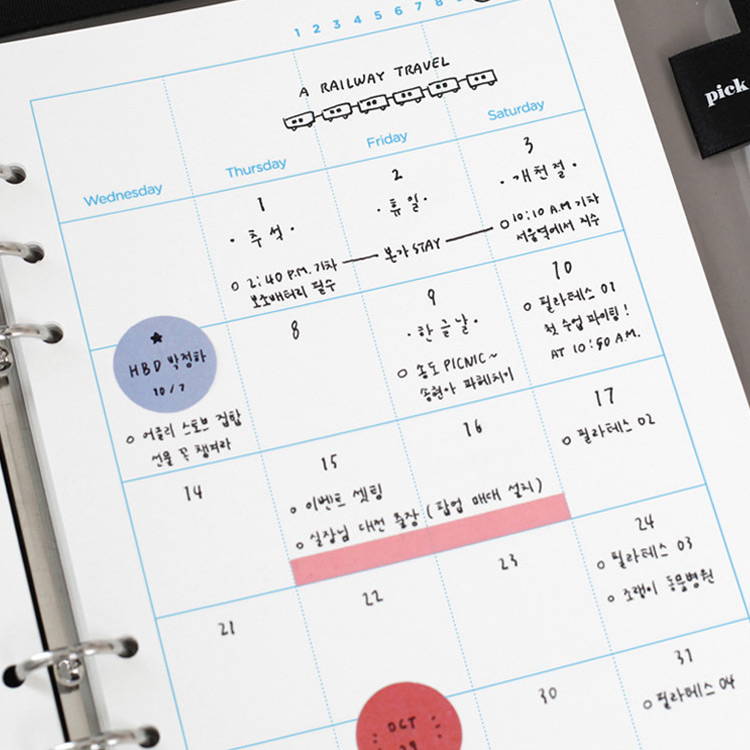 1 2 3 4 5 6 7 8
pick
A RAILWAY TRAVEL
Wednesday Thursday Friday Saturday
1
· 추석 ·
2:40 P.M. 기차
보조배터리 필수
2
· 휴일 ·
본가 STAY
3
· 개천절 ·
10:10 A.M 기차
서울역에서 지수
★
HBD 박정하
10/7
어글리 스토브 집합
선물 꼭 챙겨라
8
9
· 한글날 ·
송도 PICNIC~
송현아 파헤치이
10
필라테스 01
첫 수업 파이팅!
AT 10:50 A.M.
14
15
이벤트 셋팅
실장님 대전 출장 (팝업 매대 설치)
16
17
필라테스 02
21
22
23
24
필라테스 03
조랭이 동물병원
OCT
30
31
필라테스 04